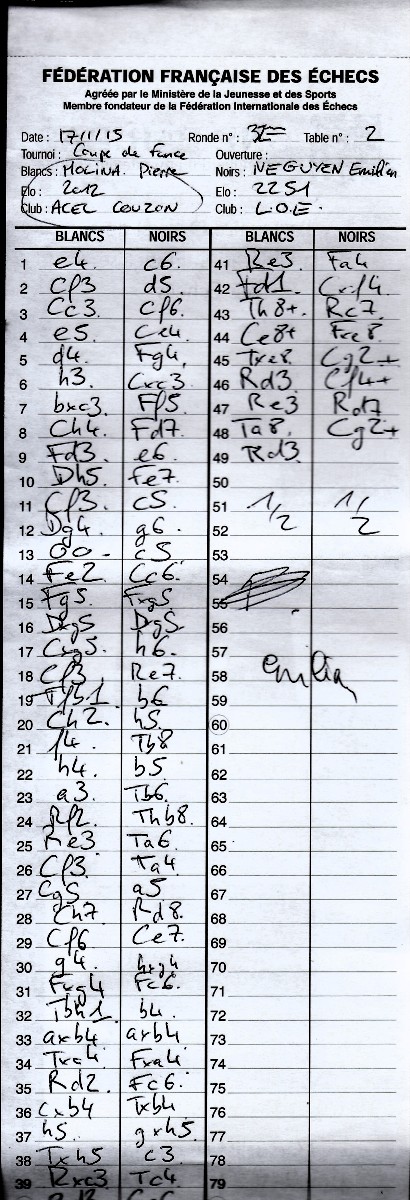 FÉDÉRATION FRANÇAISE DES ÉCHECS
Agréée par le Ministère de la Jeunesse et des Sports
Membre fondateur de la Fédération Internationale des Échecs
Date : 17/1/15 Ronde n° : Table n° : 2
Tournoi : Coupe de France Ouverture :
Blancs : MOLINA Pierre Noirs : NEGUYEN Emilien
Elo : 2012 Elo : 2251
Club : ACEL COUZON Club : L.O.E.
BLANCS NOIRS BLANCS NOIRS
1 e4 c6 41 Re3 Fa4
2 Cf3 d5 42 Fd1 Cxf4
3 Cc3 Cf6 43 Th8+ Rc7
4 e5 Ce4 44 Ce8+ Fxe8
5 d4 Fg4 45 Txe8 Cg2+
6 h3 Cxc3 46 Rd3 Cf4+
7 bxc3 Ff5 47 Re3 Rd7
8 Ch4 Fd7 48 Ta8 Cg2+
9 Fd3 e6 49 Rd3
10 Dh5 Fe7 50
11 Cf3 c5 51 1/2 1/2
12 Dg4 g6 52
13 00 c5 53
14 Fe2 Cc6 54
15 Fg5 Fxg5 55
16 Dxg5 Dxg5 56
17 Cxg5 h6 57
18 Cf3 Re7 58 emilian
19 Tfb1 b6 59
20 Ch2 h5 60
21 f4 Tb8 61
22 h4 b5 62
23 a3 Tb6 63
24 Rf2 Thb8 64
25 Re3 Ta6 65
26 Cf3 Ta4 66
27 Cg5 a5 67
28 Ch7 Rd8 68
29 Cf6 Ce7 69
30 g4 hxg4 70
31 Fxg4 Fc6 71
32 Tbh1 b4 72
33 axb4 axb4 73
34 Txa4 Fxa4 74
35 Rd2 Fc6 75
36 cxb4 Txb4 76
37 h5 gxh5 77
38 Txh5 c3 78
39 Rxc3 Tc4 79